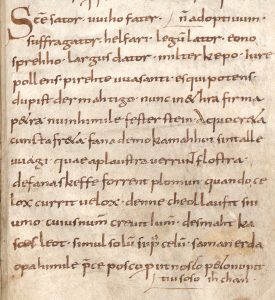 Sce sator. uuiho fater. n̄ adoptiuum.
suffragator. helfari. legū lator. eono
sprehho. largus dator. milter kepo. iure
pollens. pirehte uuasanti. es qui potens.
du pist der mahtigo. nunc in &hra firma
p&ra. nu in himile fester stein. A quo cr&a
cuncta fr&a. fana demo kamahhot sint alle
uuagi. quae aplaustra uerrunt flostra.
defana skeffe forrent plomun. quando ce
lox currit uelox. denne cheol laufit sni
umo. cuius numen creuit lumen. des maht ka
scof leot. simul solū supr̄ celū. saman erda
opa himile. p̄ce posco p̄ut nosco. p&ono pit
tiu soso ih chan.